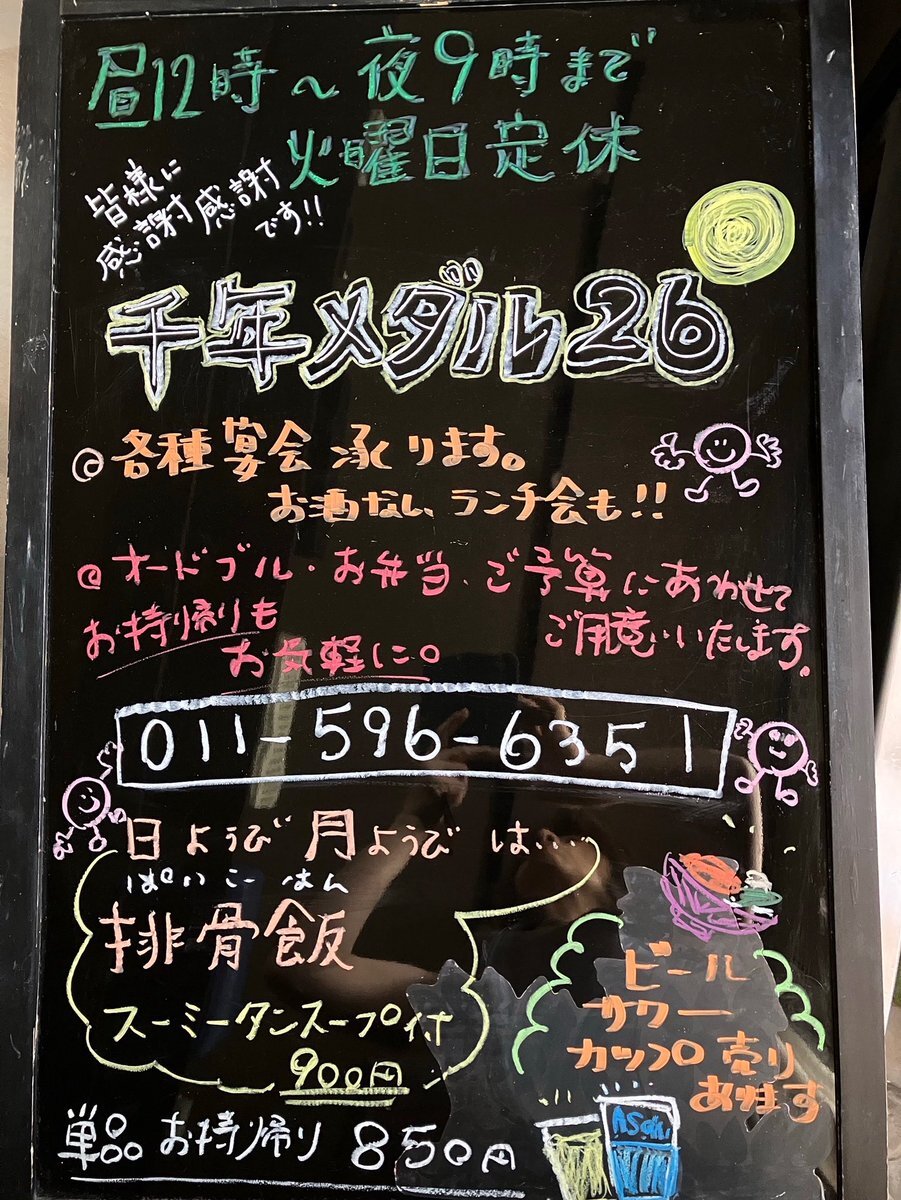 昼12時〜夜9時まで
火曜日定休
皆様に
感謝感謝
です!!
千年メダル26
◎各種宴会承ります。
お酒なし、ランチ会も!!
◎オードブル・お弁当、ご予算にあわせて
ご用意いたします。
お持帰りも
お気軽に。
011-596-6351
日ようび月ようびは…
ぱいこーはん
排骨飯
スーミータンスープ付
900円
単品お持帰り850円
ビール
サワー
カップ売り
あります
Asahi